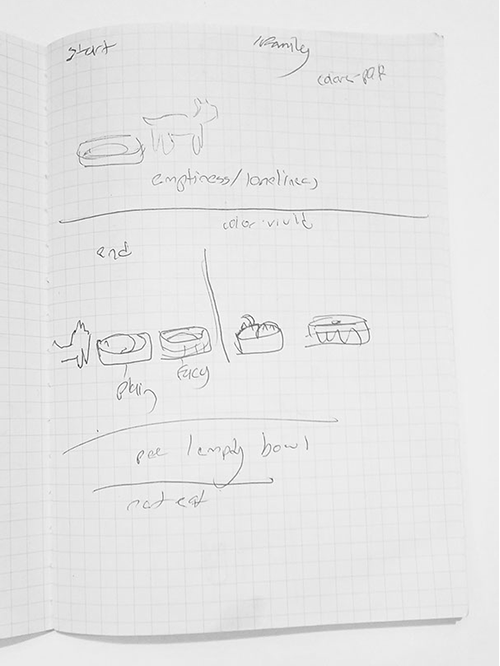 start
Family
color-pale
emptiness/loneliness
color-vivid
end
plain
fancy
pee / empty bowl
not eat